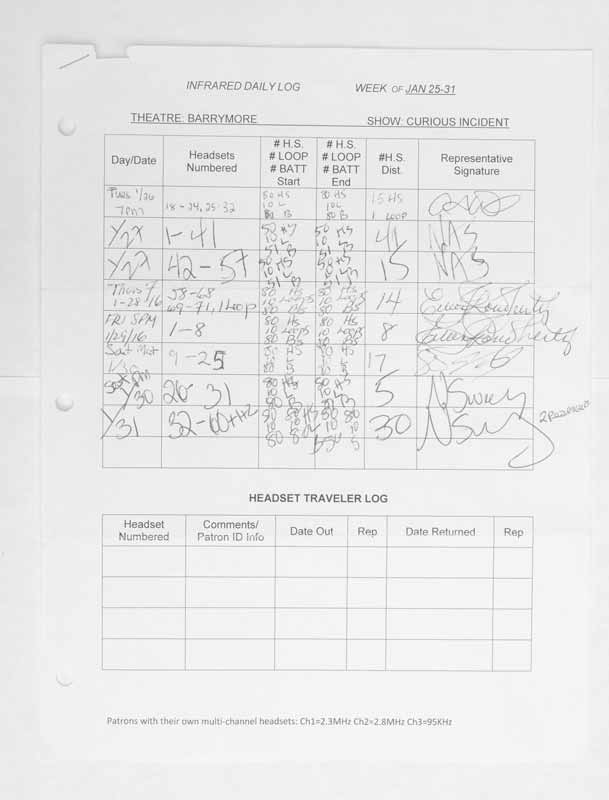 INFRARED DAILY LOG WEEK OF JAN 25-31
THEATRE: BARRYMORE SHOW: CURIOUS INCIDENT
Day/Date Headsets Numbered # H.S. # LOOP # BATT Start # H.S. # LOOP # BATT End #H.S. Dist. Representative Signature
Tues 1/26 7pm 18-24, 25-32 80 HS 10 L 80 B 80 HS 10L 80 B 15 HS 1 LOOP
1-41 50 HS 10 L 51 B 50 HS 10 L 51 B 41 NAS
42-57 50 HS 10 L 51 B 50 HS 10 L 51 B 15 NAS
Thurs 1-28-16 58-68 69-71, 1 Loop 80 HS 10 Loops 80 BS 80 HS 10 Loops 80 BS 14
FRI 8PM 1/29/16 1-8 80 HS 10 Loops 80 BS 80 HS 10 Loops 80 BS 8
Sat Mat 1/30 9-25 80 HS 10 L 80 B 80 HS 10 L 80 B 17
1/30 26-31 80 HS 10 L 80 B 80 HS 10 L 80 B 5
1/31 32-60 30
HEADSET TRAVELER LOG
Headset Numbered Comments/ Patron ID Info Date Out Rep Date Returned Rep
Patrons with their own multi-channel headsets: Ch1=2.3MHz Ch2=2.8MHz Ch3=95KHz